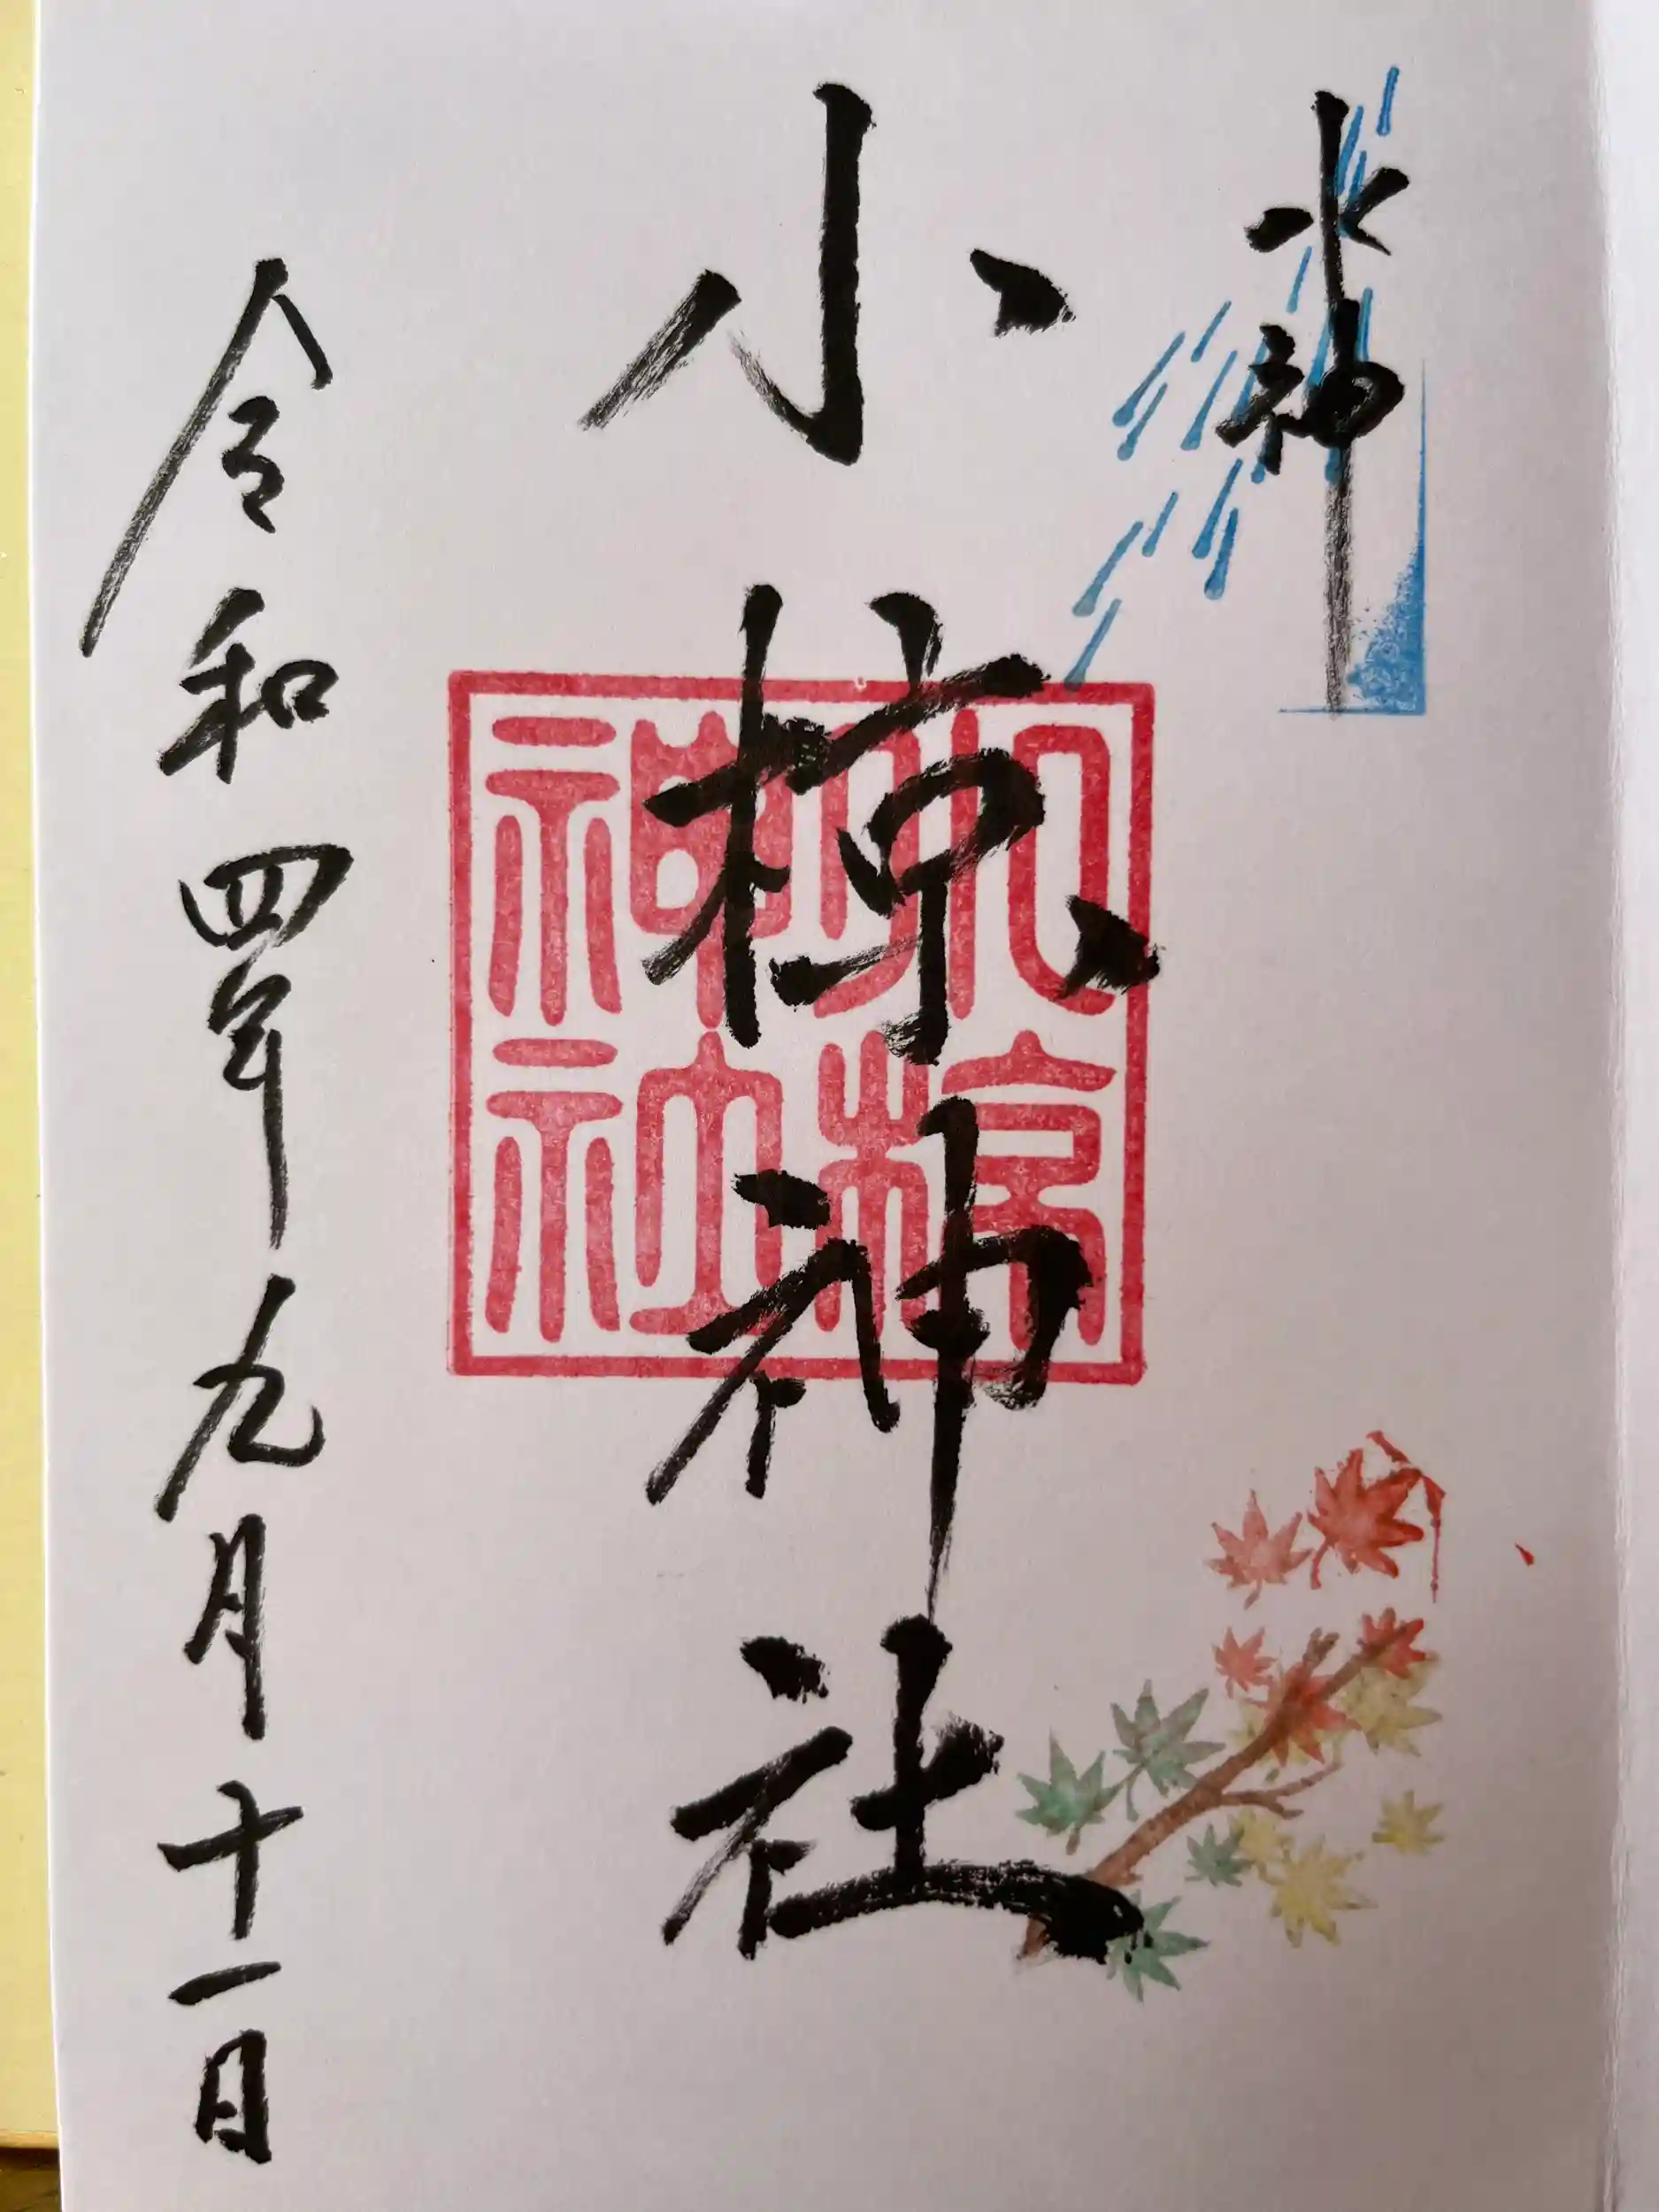 水神
小椋神社
小椋
神社
令和四年九月十一日